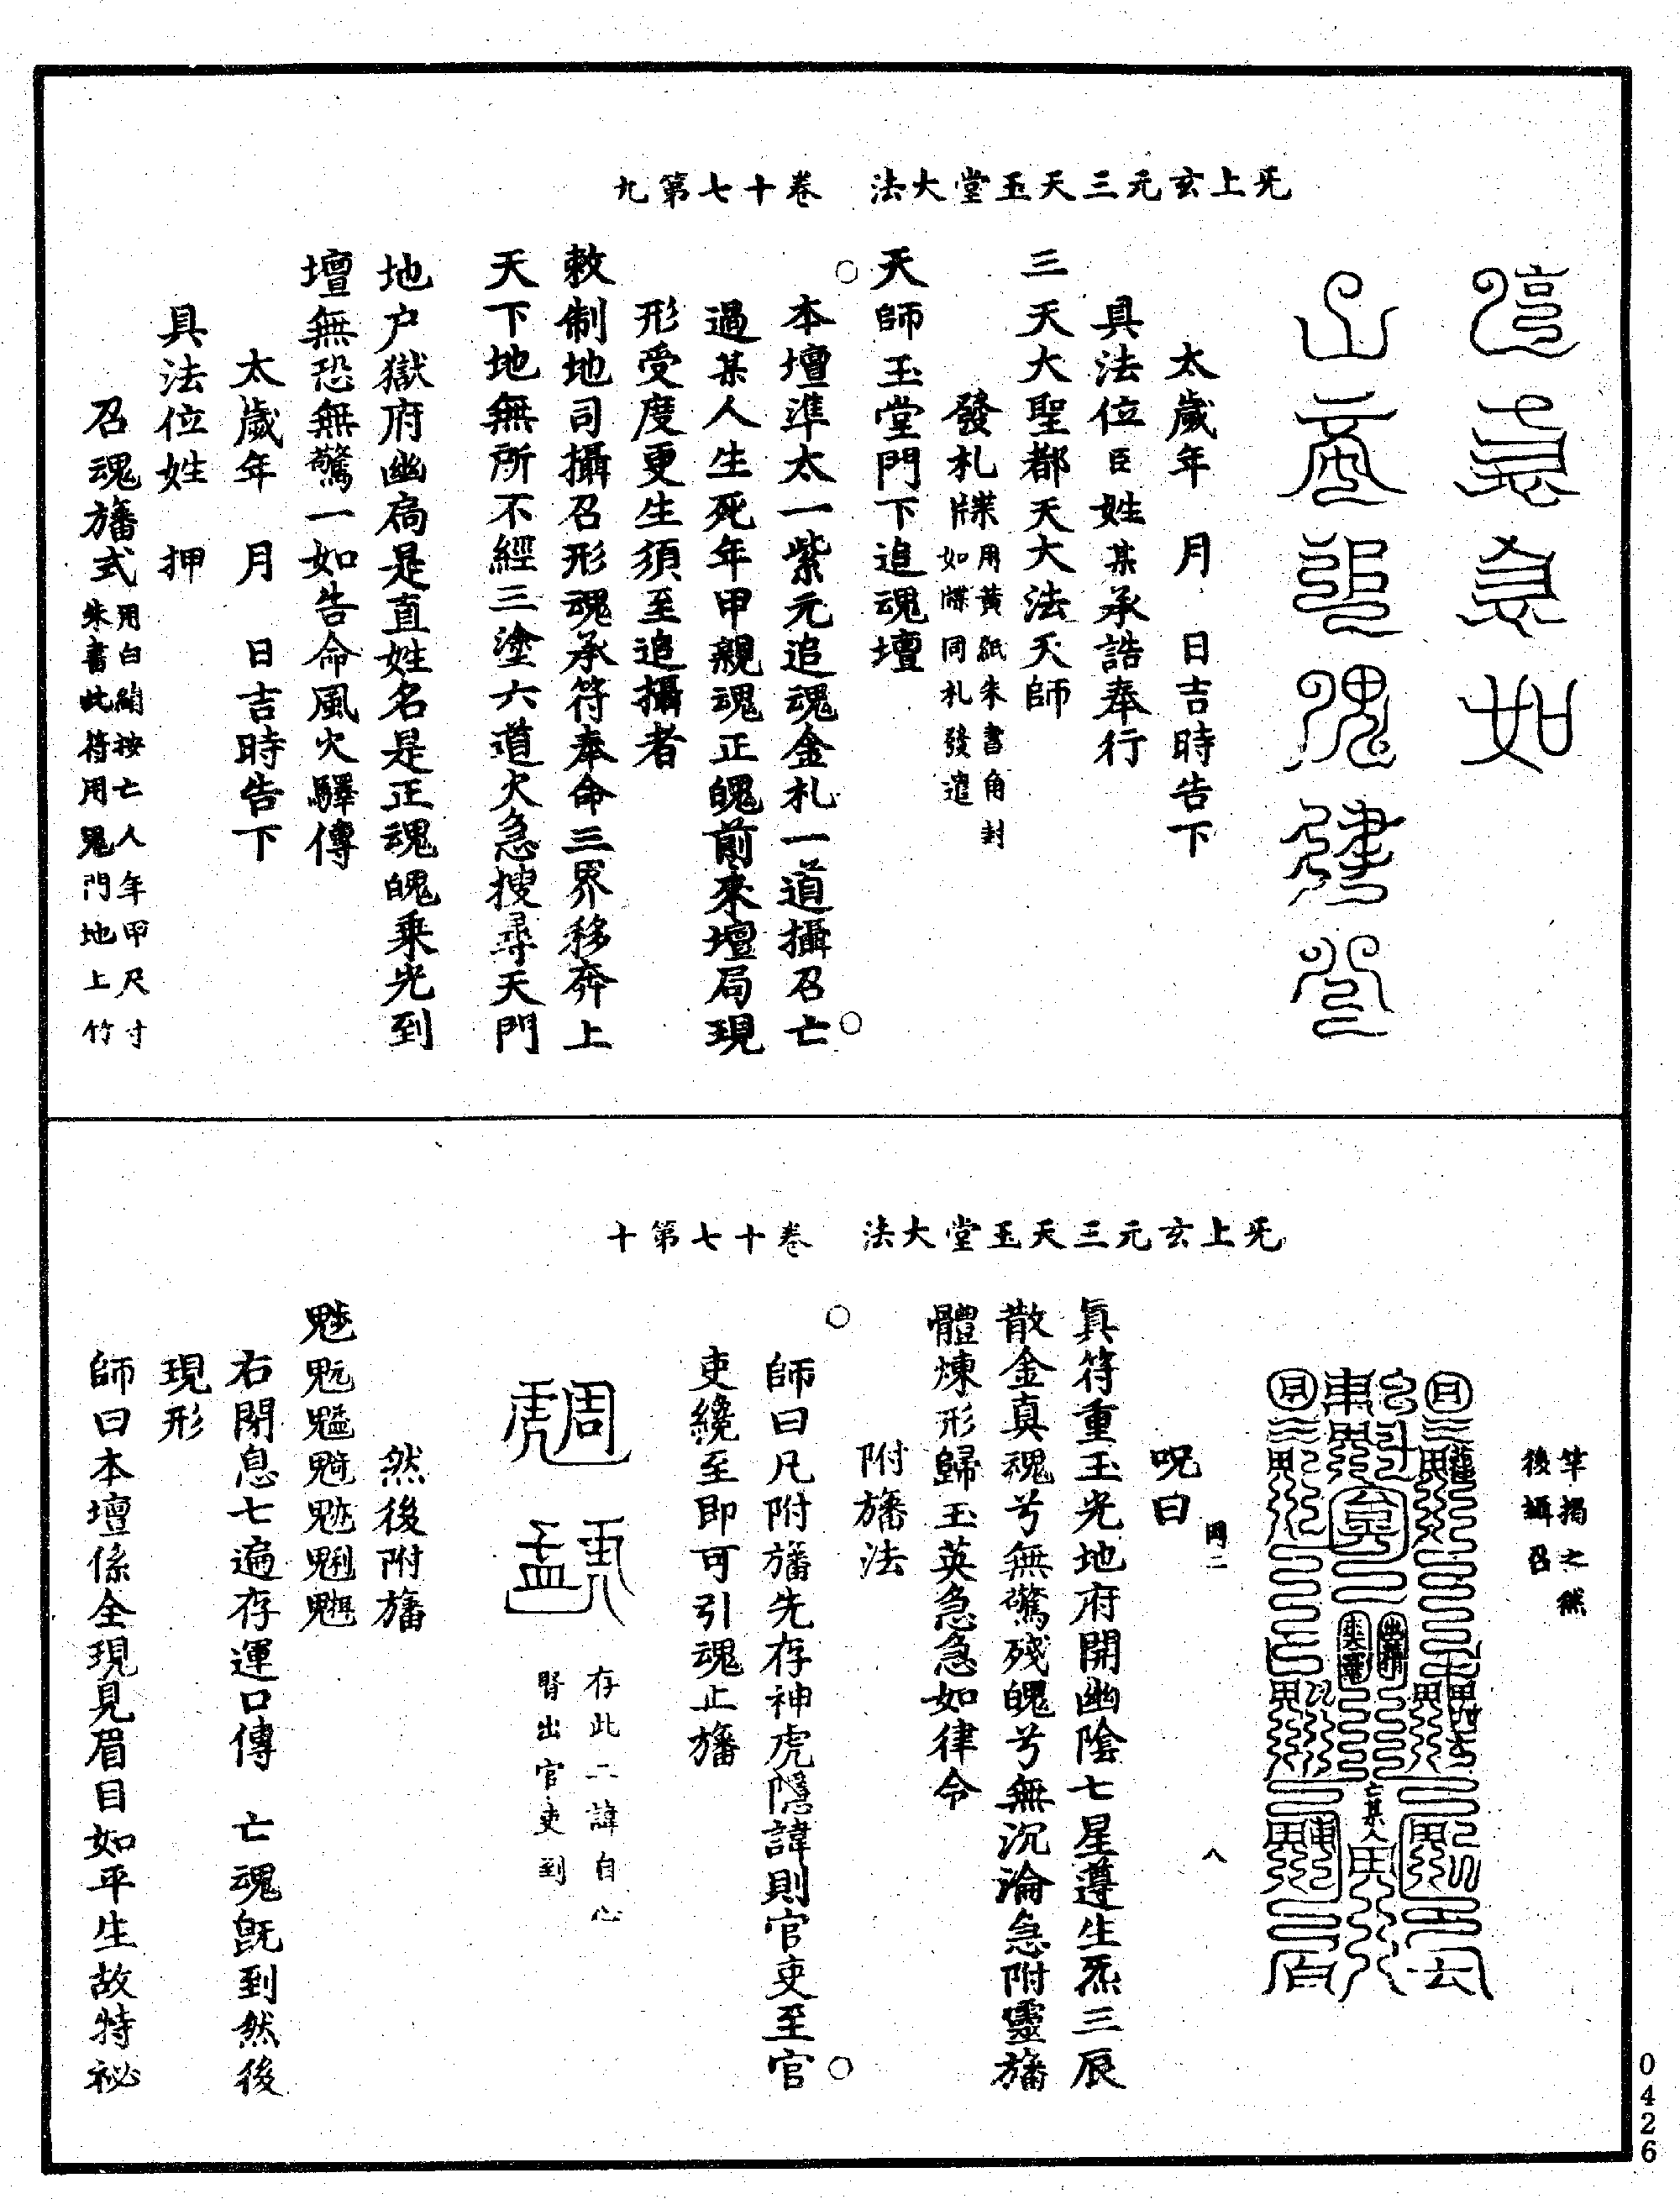 旡上玄元三天玉堂大法　卷十七第九
急急如
太歲年　月　日吉時告下
具法位臣姓某承誥奉行
三天大聖都天大法天師
發札牒用黃紙朱書角封如牒同札發遣
天師玉堂門下追魂壇
本壇準太一紫元追魂金札一道攝召亡
過某人生死年甲親魂正魄前來壇局現
形受度更生須至追攝者
敕制地司攝召形魂承符奉命三界移奔上
天下地無所不經三塗六道火急搜尋天門
地户獄府幽扃是直姓名是正魂魄乘光到
壇無恐無驚一如告命風火驛傳
太歲年　月　日吉時告下
具法位姓　押
召魂旛式用白絹按亡人年甲尺寸朱書此符用鬼門地上竹
旡上玄元三天玉堂大法　卷十七第十
竿揭之然後攝召
亡某人
同二　八
呪曰
眞符重玉光地府開幽陰七星遵生炁三辰
散金真魂兮無驚殘魄兮無沉淪急附靈旛
體煉形歸玉英急急如律令
附旛法
師曰凡附旛先存神虎隱諱則官吏至官
吏纔至即可引魂止旛
存此二諱自心腎出官吏到
然後附旛
魒魓魖魕魊魎魋
右閉息七遍存運口傳　亡魂旣到然後
現形
師曰本壇係全現見眉目如平生故特祕
0426